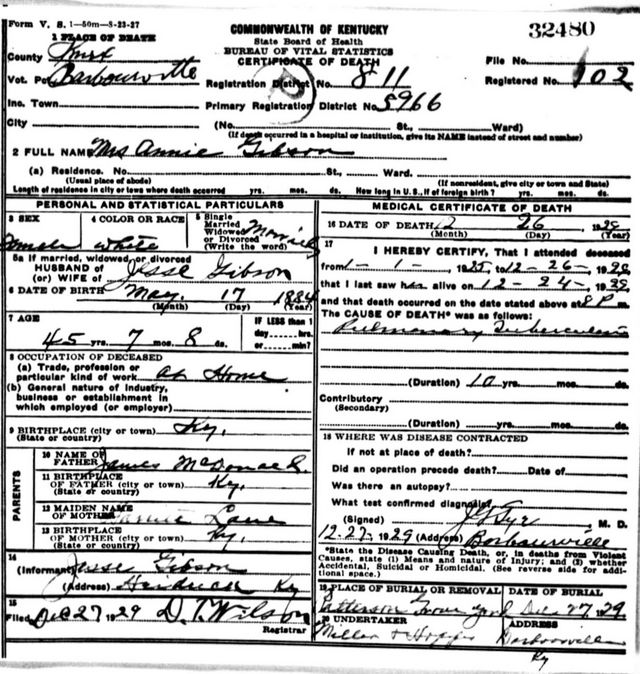 Form V. S. 1—50m—8-23-27
COMMONWEALTH OF KENTUCKY
State Board of Health
BUREAU OF VITAL STATISTICS
CERTIFICATE OF DEATH
32480
1 PLACE OF DEATH
County Knox
Vot. Pct. Barbourville
Inc. Town
City
File No.
Registered No. 102
Registration District No. 811
Primary Registration District No. 5966
(No. St., Ward)
(If death occurred in a hospital or institution, give its NAME instead of street and number)
2 FULL NAME Mrs Annie Gibson
(a) Residence. No. St., Ward.
(Usual place of abode) (If nonresident, give city or town and State)
Length of residence in city or town where death occurred yrs. mos. ds. How long in U. S., if of foreign birth? yrs. mos. ds.
PERSONAL AND STATISTICAL PARTICULARS
3 SEX Female
4 COLOR OR RACE white
5 Single Married Widowed or Divorced (Write the word) Married
5a If married, widowed, or divorced
HUSBAND of
(or) WIFE of Jesse Gibson
6 DATE OF BIRTH May 17 1884
(Month) (Day) (Year)
7 AGE
45 yrs. 7 mos. 8 ds.
IF LESS than 1 day......hrs. or......min?
8 OCCUPATION OF DECEASED
(a) Trade, profession or particular kind of work At Home
(b) General nature of industry, business or establishment in which employed (or employer)
9 BIRTHPLACE (city or town) Ky.
(State or country)
PARENTS
10 NAME OF FATHER James McDonald
11 BIRTHPLACE OF FATHER (city or town) Ky.
(State or country)
12 MAIDEN NAME OF MOTHER Lane
13 BIRTHPLACE OF MOTHER (city or town) Ky.
(State or country)
14
(Informant) Jesse Gibson
(Address) Heidrick Ky
15
Filed Dec 27 1929 D. T. Wilson
Registrar
MEDICAL CERTIFICATE OF DEATH
16 DATE OF DEATH 12 26 1929
(Month) (Day) (Year)
17
I HEREBY CERTIFY, That I attended deceased
from 1-1- to 12-26-1929
that I last saw alive on 12-24-1929
and that death occurred on the date stated above at 8 P m.
The CAUSE OF DEATH* was as follows:
Pulmonary Tuberculosis
(Duration) 10 yrs. mos. ds.
Contributory
(Secondary)
(Duration) yrs. mos. ds.
18 WHERE WAS DISEASE CONTRACTED
If not at place of death?
Did an operation precede death? Date of
Was there an autopsy?
What test confirmed diagnosis?
(Signed) M. D.
12-27-1929 (Address) Barbourville
*State the Disease Causing Death, or, in deaths from Violent
Causes, state (1) Means and nature of Injury; and (2) whether
Accidental, Suicidal or Homicidal. (See reverse side for additional space.)
19 PLACE OF BURIAL OR REMOVAL DATE OF BURIAL
Patterson Dec 27 1929
20 UNDERTAKER ADDRESS
Miller & Hopper Barbourville
Ky